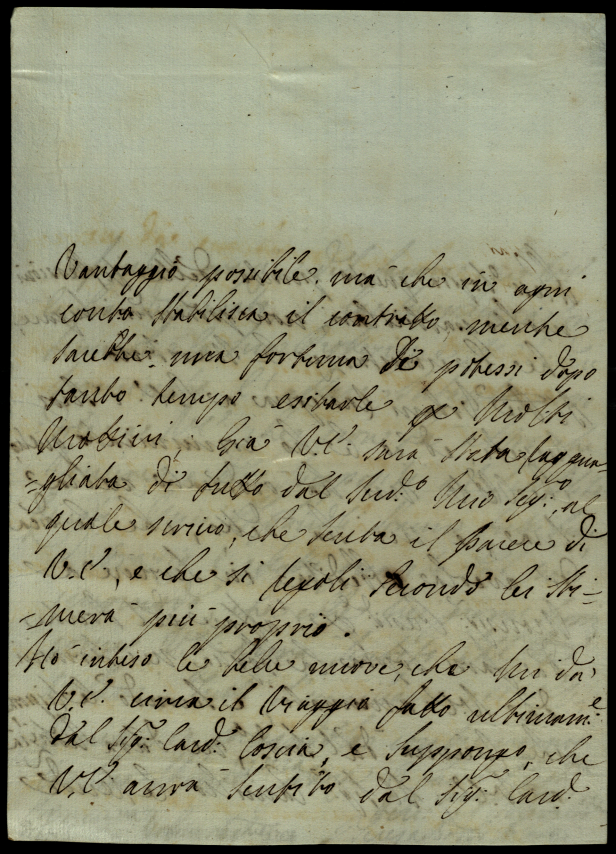 Vantaggio possibile, mà che in ogni
conto stabilisca il contratto mentre
sarebbe una fortuna di potessi dopo
tanto tempo esitarle p molti
motivi, Già V.E. sarà stata raggua-
=gliata di tutto dal sud.º mio Sig.º, al
quale scrivo, che senta il parere di
V.E., e che si regoli secondo lei sti-
=merà più proprio.
Hò inteso le belle nuove, che mi dà
V.E. circa il viaggio fatto ultimam.e
dal Sig.r Card. Coscia, e suppongo, che
V.E. avrà sentito dal Sig.r Card.